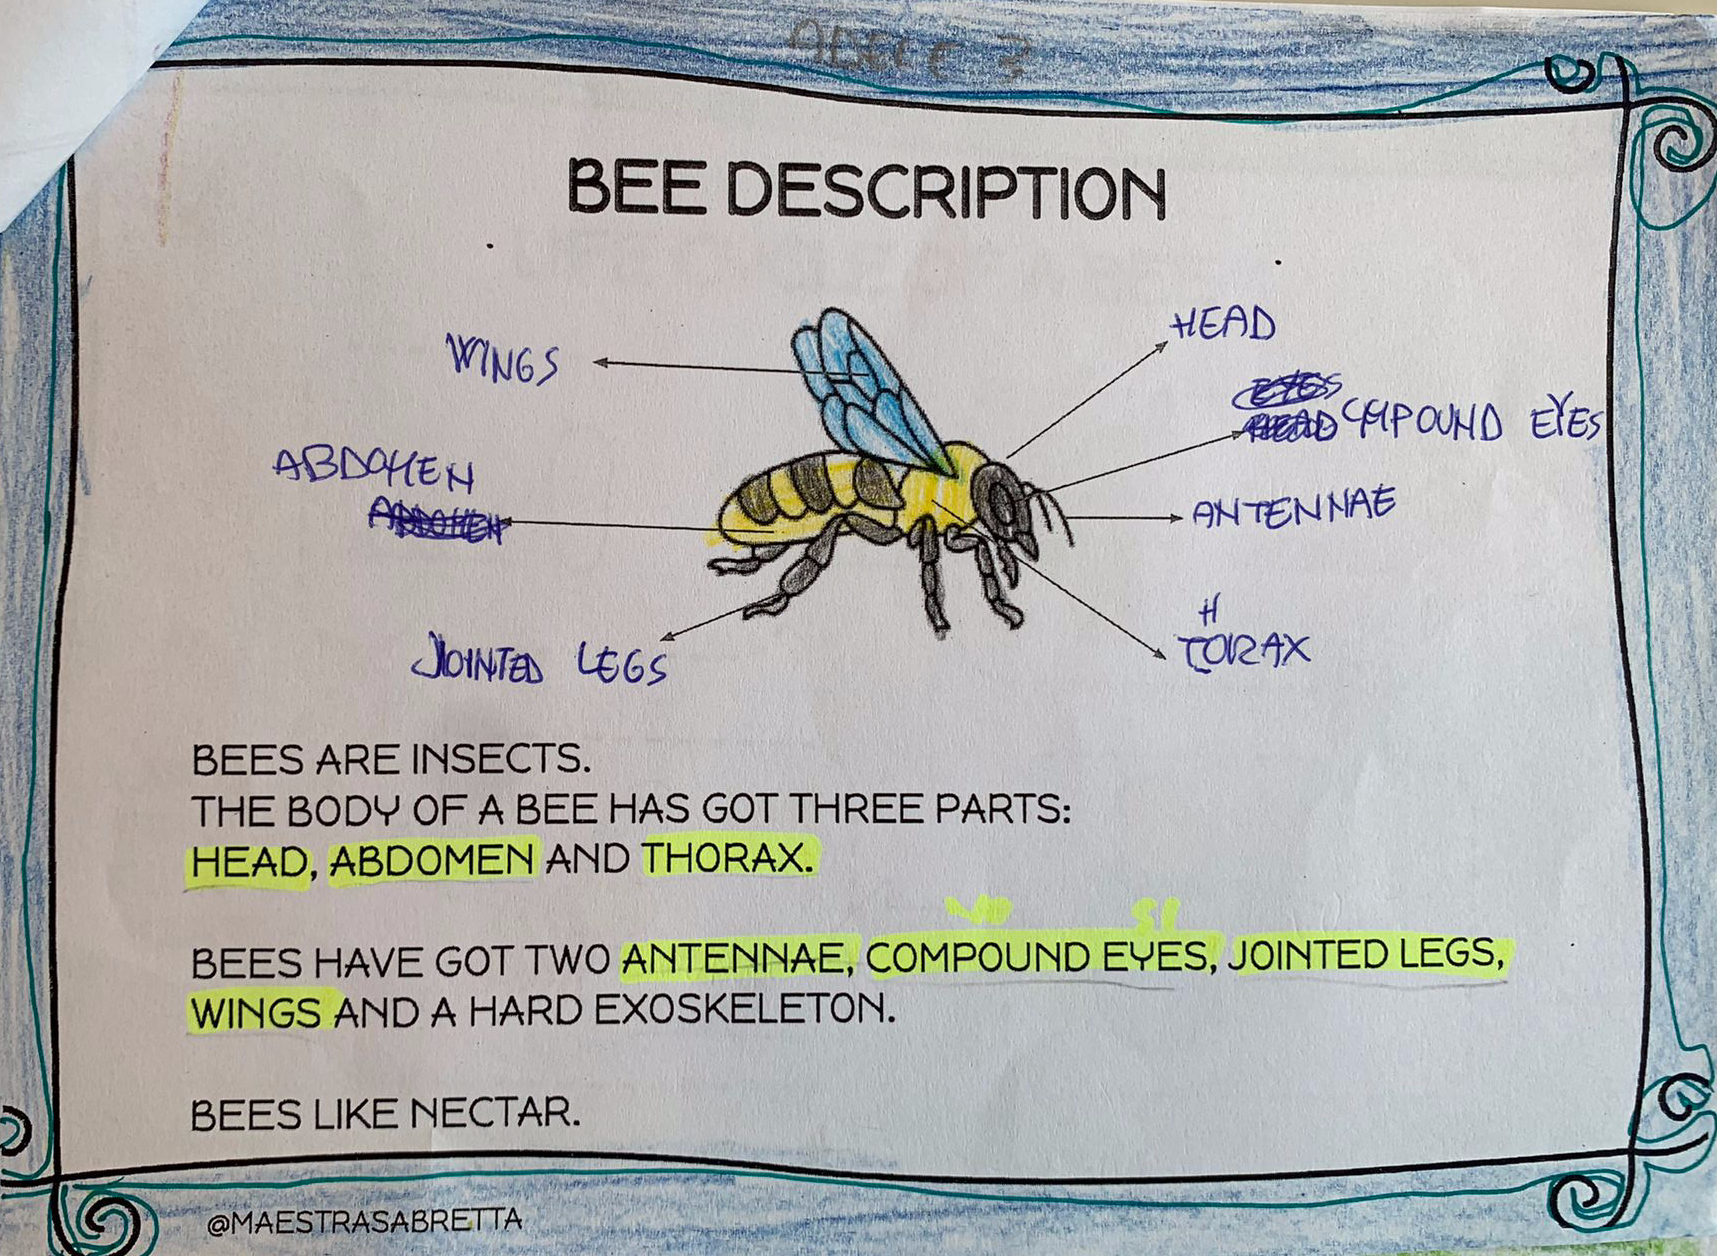 ADELE ?
BEE DESCRIPTION
WINGS
HEAD
COMPOUND EYES
ABDOMEN
ANTENNAE
H
TORAX
JOINTED LEGS
BEES ARE INSECTS.
THE BODY OF A BEE HAS GOT THREE PARTS:
HEAD, ABDOMEN AND THORAX.
SI
BEES HAVE GOT TWO ANTENNAE, COMPOUND EYES, JOINTED LEGS,
WINGS AND A HARD EXOSKELETON.
BEES LIKE NECTAR.
@MAESTRASABRETTA